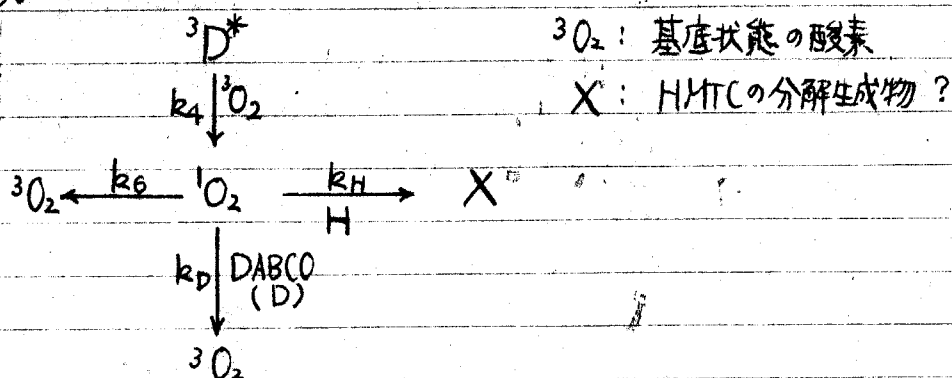 ³D*
³O₂ : 基底状態の酸素
k₄ ³O₂
X : HMTCの分解生成物 ?
³O₂ k₆ ¹O₂ kH X
H
kD DABCO
(D)
³O₂